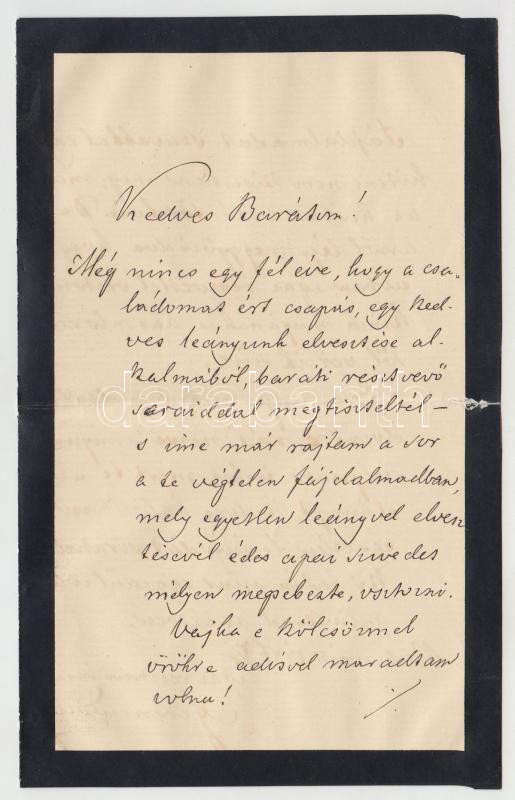 Kedves Barátom!
Még nincs egy fél éve, hogy a csa-
ládomat ért csapás, egy ked-
ves leányunk elvesztése al-
kalmából, baráti résztvevő
soraiddal megtiszteltél –
s ime már rajtam a sor
a te végtelen fájdalmadban,
mely egyetlen leányod elvesz
tésevel édes apai szivedet
mélyen megsebezte, osztozni.
Vajha e kölcsönnel
örökre adósod maradtam
volna!
./.
darabanth